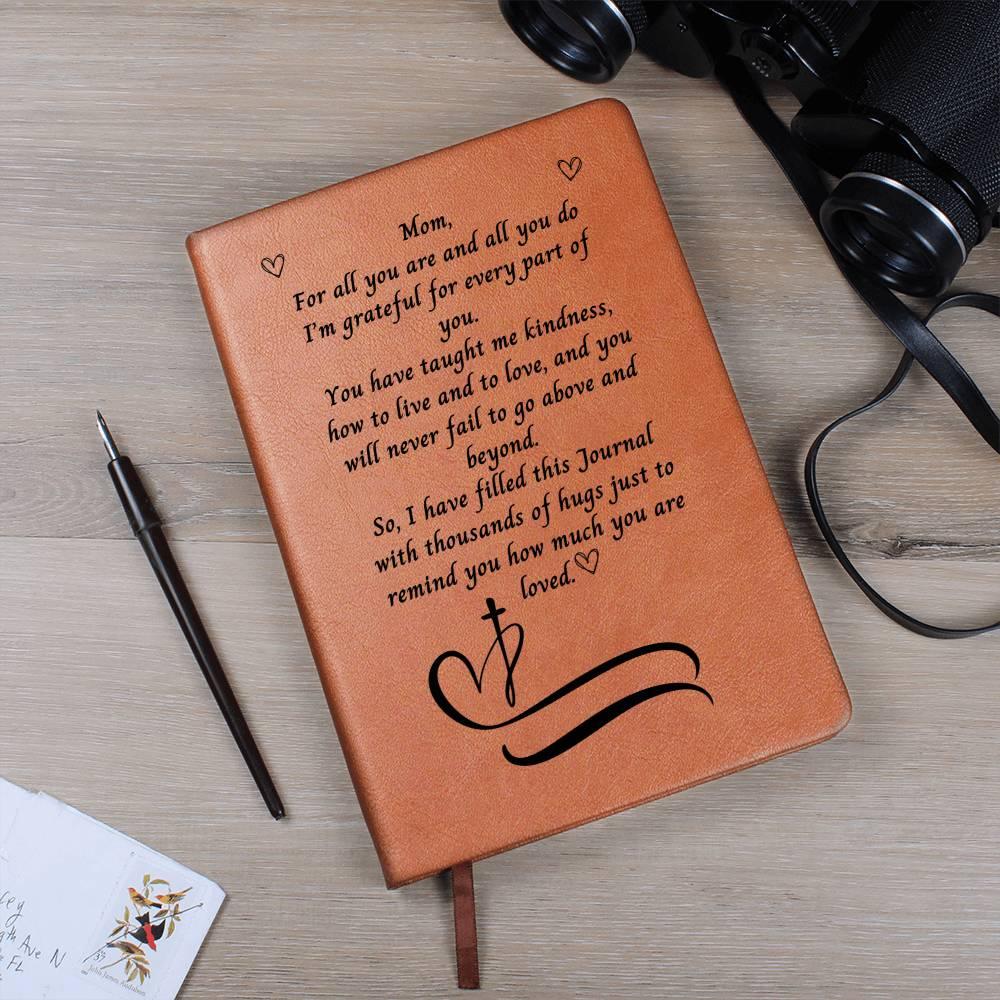 Mom,
For all you are and all you do
I'm grateful for every part of
you.
You have taught me kindness,
how to live and to love, and you
will never fail to go above and
beyond.
So, I have filled this Journal
with thousands of hugs just to
remind you how much you are
loved.
Ave N
FL
37
John James Audubon